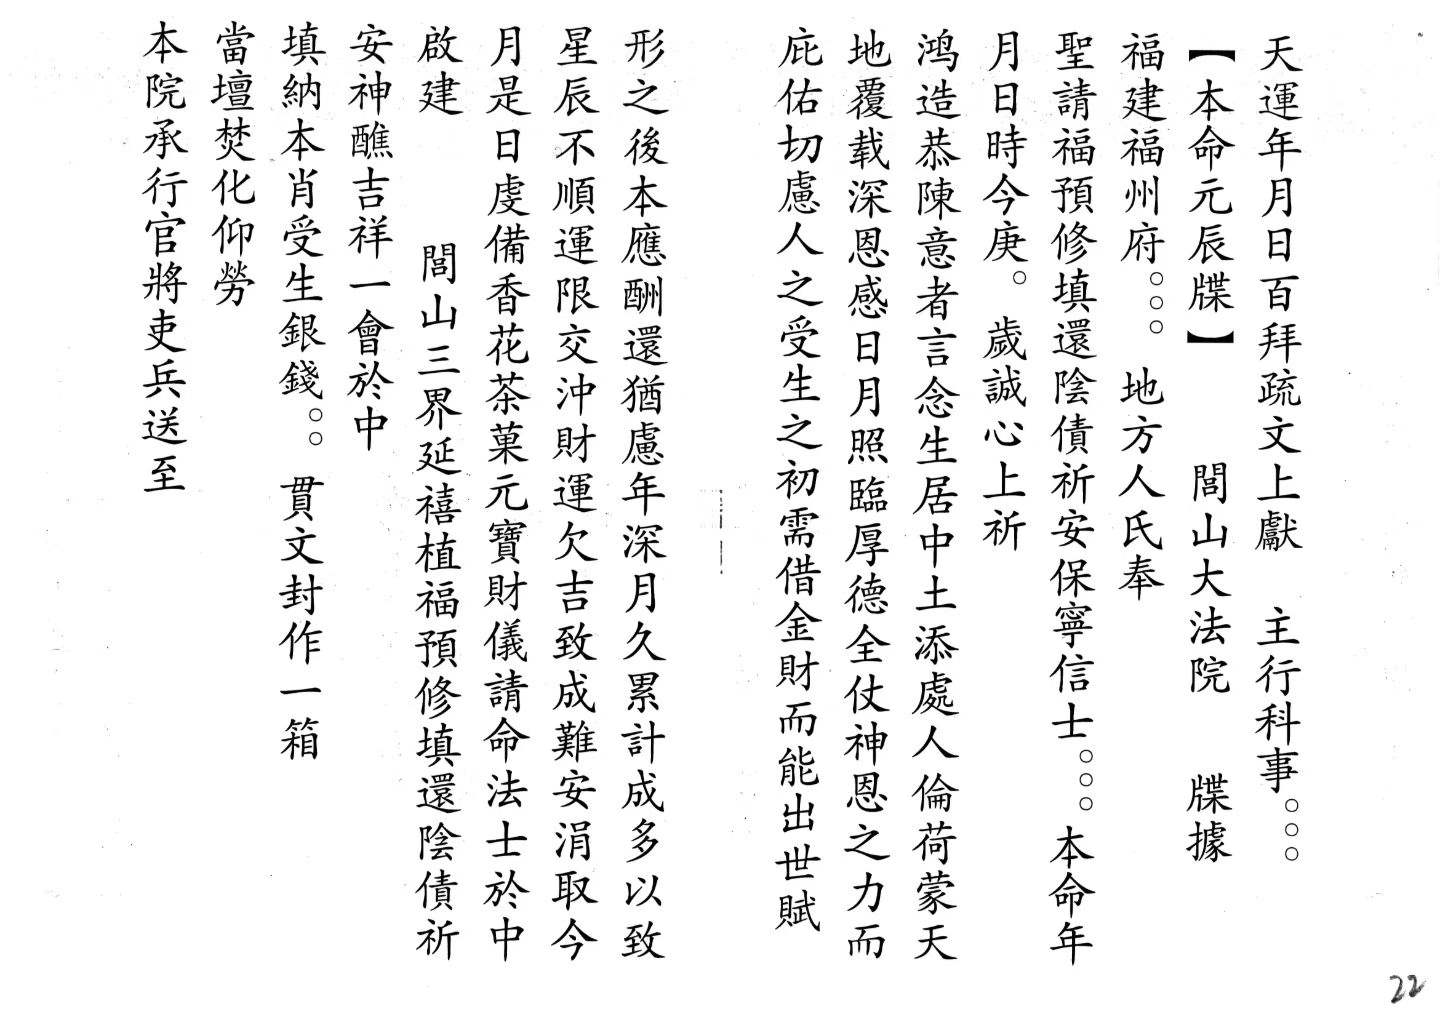 天運年月日百拜疏文上獻　主行科事○○○
【本命元辰牒】　閭山大法院　牒據
福建福州府○○○　地方人氏奉
聖請福預修填還陰債祈安保寧信士○○○本命年
月日時今庚。歲誠心上祈
鸿造恭陳意者言念生居中土添處人倫荷蒙天
地覆载深恩感日月照臨厚德全仗神恩之力而
庇佑切慮人之受生之初需借金財而能出世賦
形之後本應酬還猶慮年深月久累計成多以致
星辰不順運限交沖財運欠吉致成難安涓取今
月是日虔備香花茶菓元寶財儀請命法士於中
啟建　閭山三界延禧植福預修填還陰債祈
安神醮吉祥一會於中
填納本肖受生銀錢○○　貫文封作一箱
當壇焚化仰勞
本院承行官將吏兵送至
22